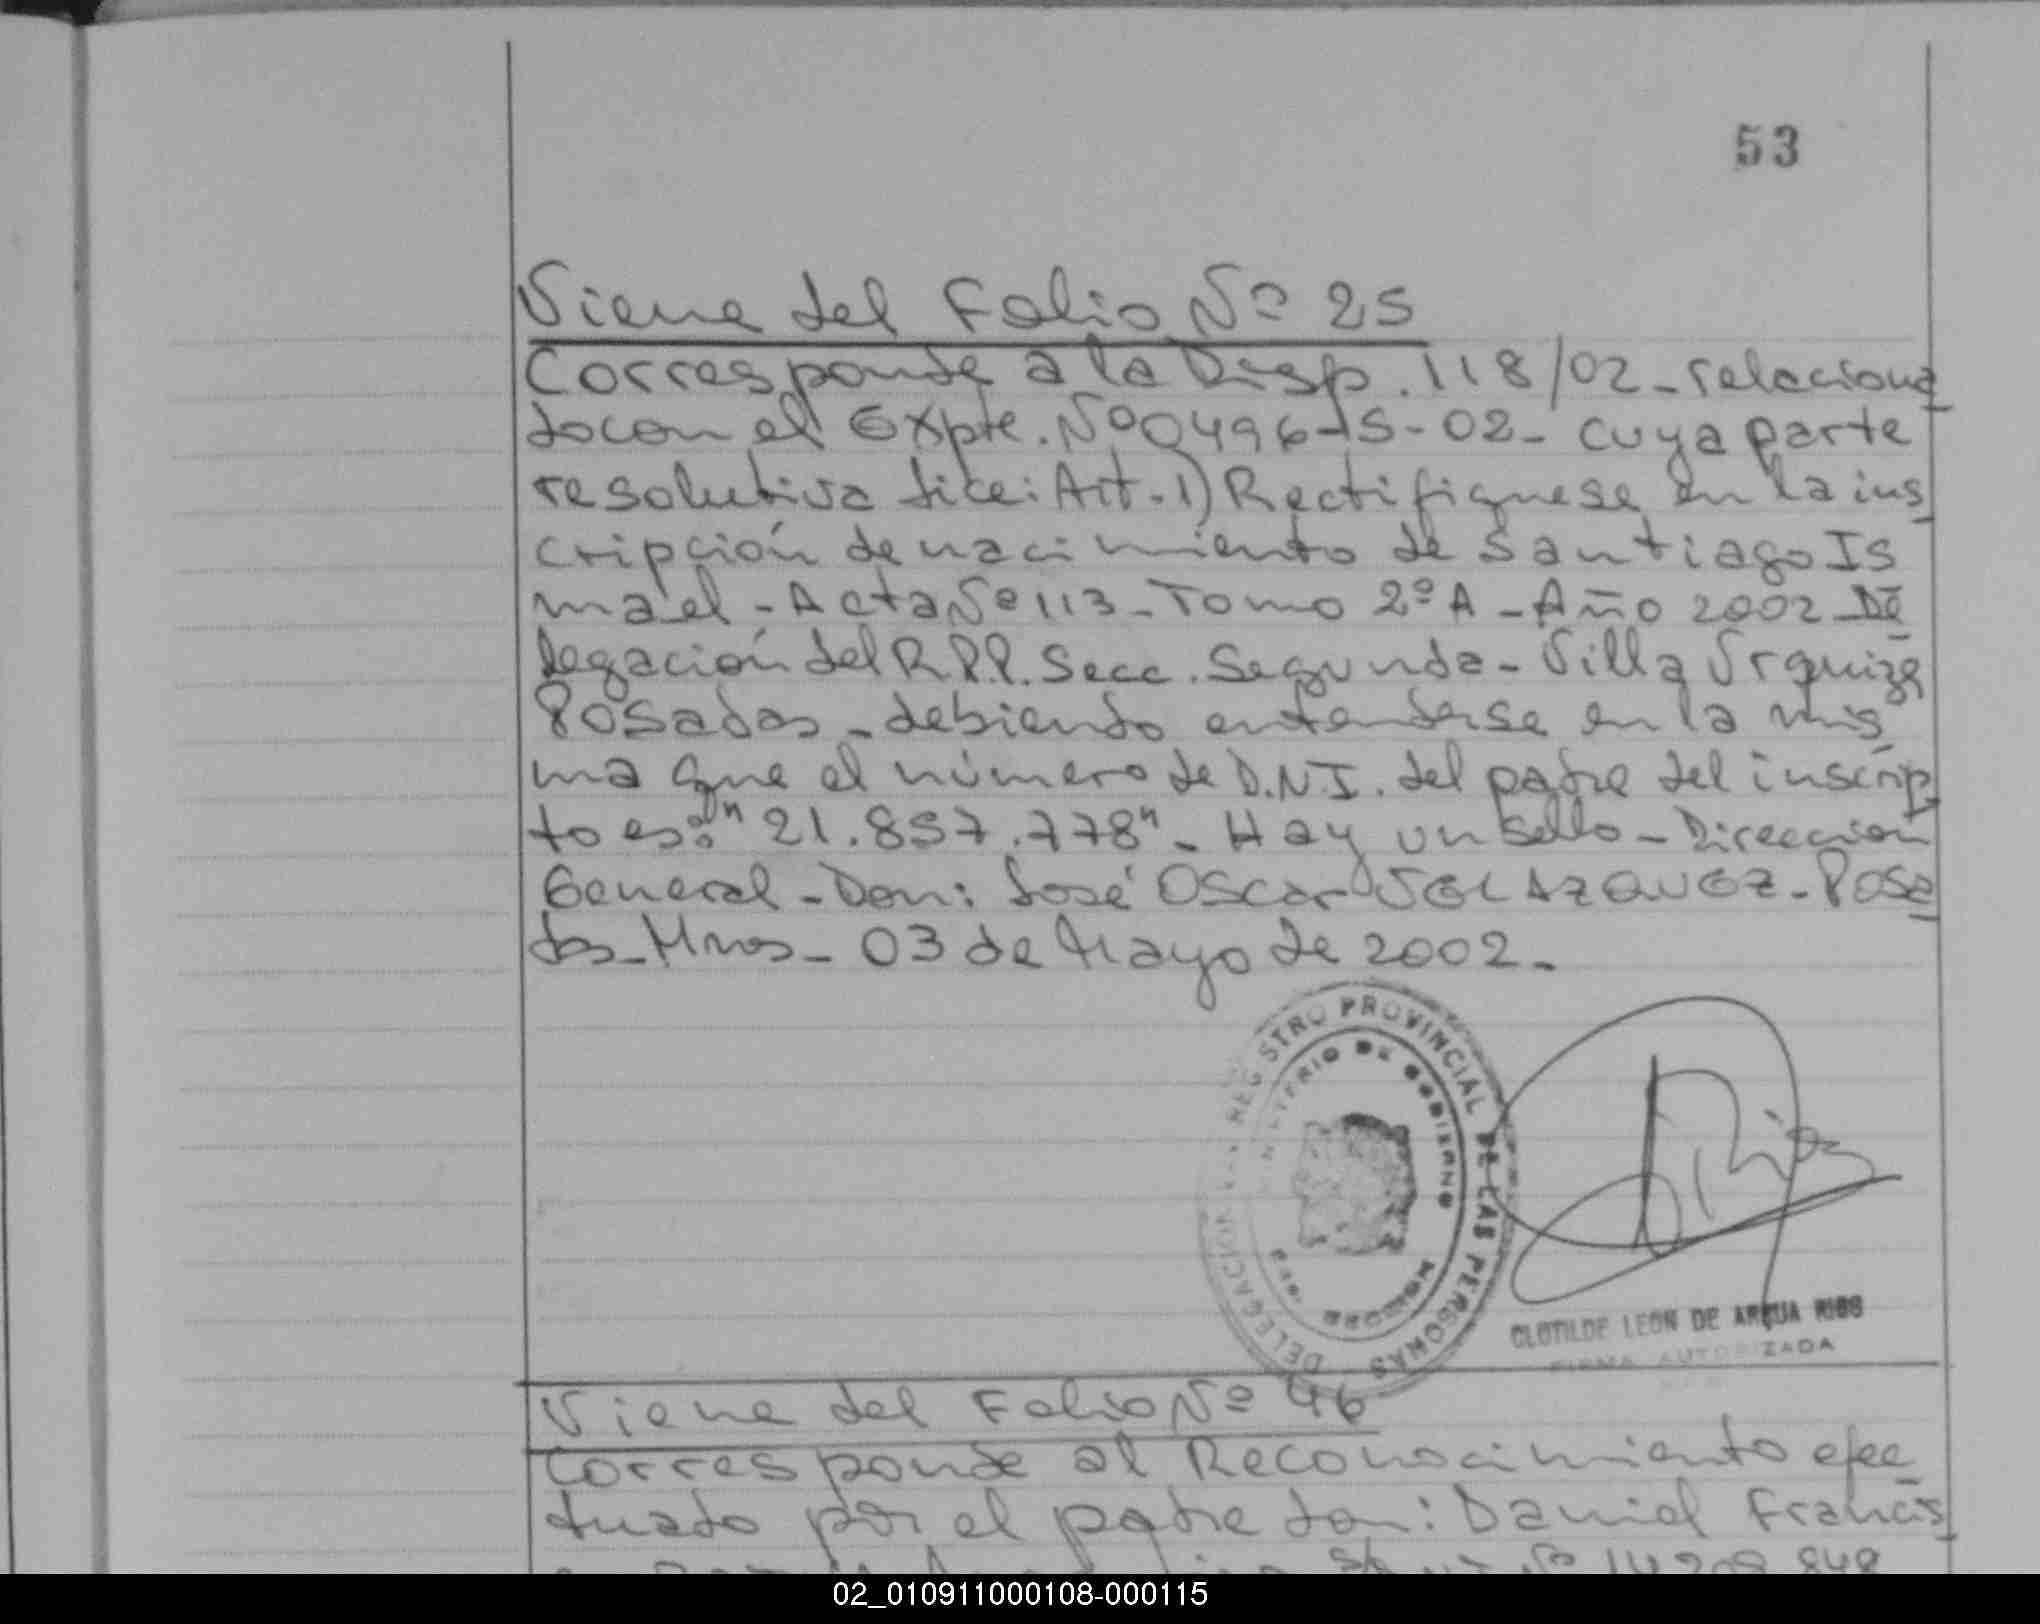 53
Viene del Folio Nº 25
Corresponde a la Disp. 118/02 - relaciona
do con el Expte. Nº 0496-S-02 - cuya parte
resolutiva dice: Art. 1) Rectifiquese en la ins
cripción de nacimiento de Santiago Is
mael - Acta Nº 113 - Tomo 2º A - Año 2002 - De
legación del R.P.P. Secc. Segunda - Villa Urquiza
Posadas - debiendo entenderse en la mis
ma que el número de D.N.I. del padre del inscrip
to es: "21.857.778" - Hay un Sello - Direccion
General - Don: José Oscar VELAZQUEZ - Posa
das - Mnes - 03 de Mayo de 2002 -
DELEGACION REGISTRO PROVINCIAL DE LAS PERSONAS
MINISTERIO DE GOBIERNO
CLOTILDE LEON DE ARQUA RIOS
FIRMA AUTORIZADA
Viene del Folio Nº 46
Corresponde al Reconocimiento efec
tuado por el padre don: Daniel Francis
02_010911000108-000115